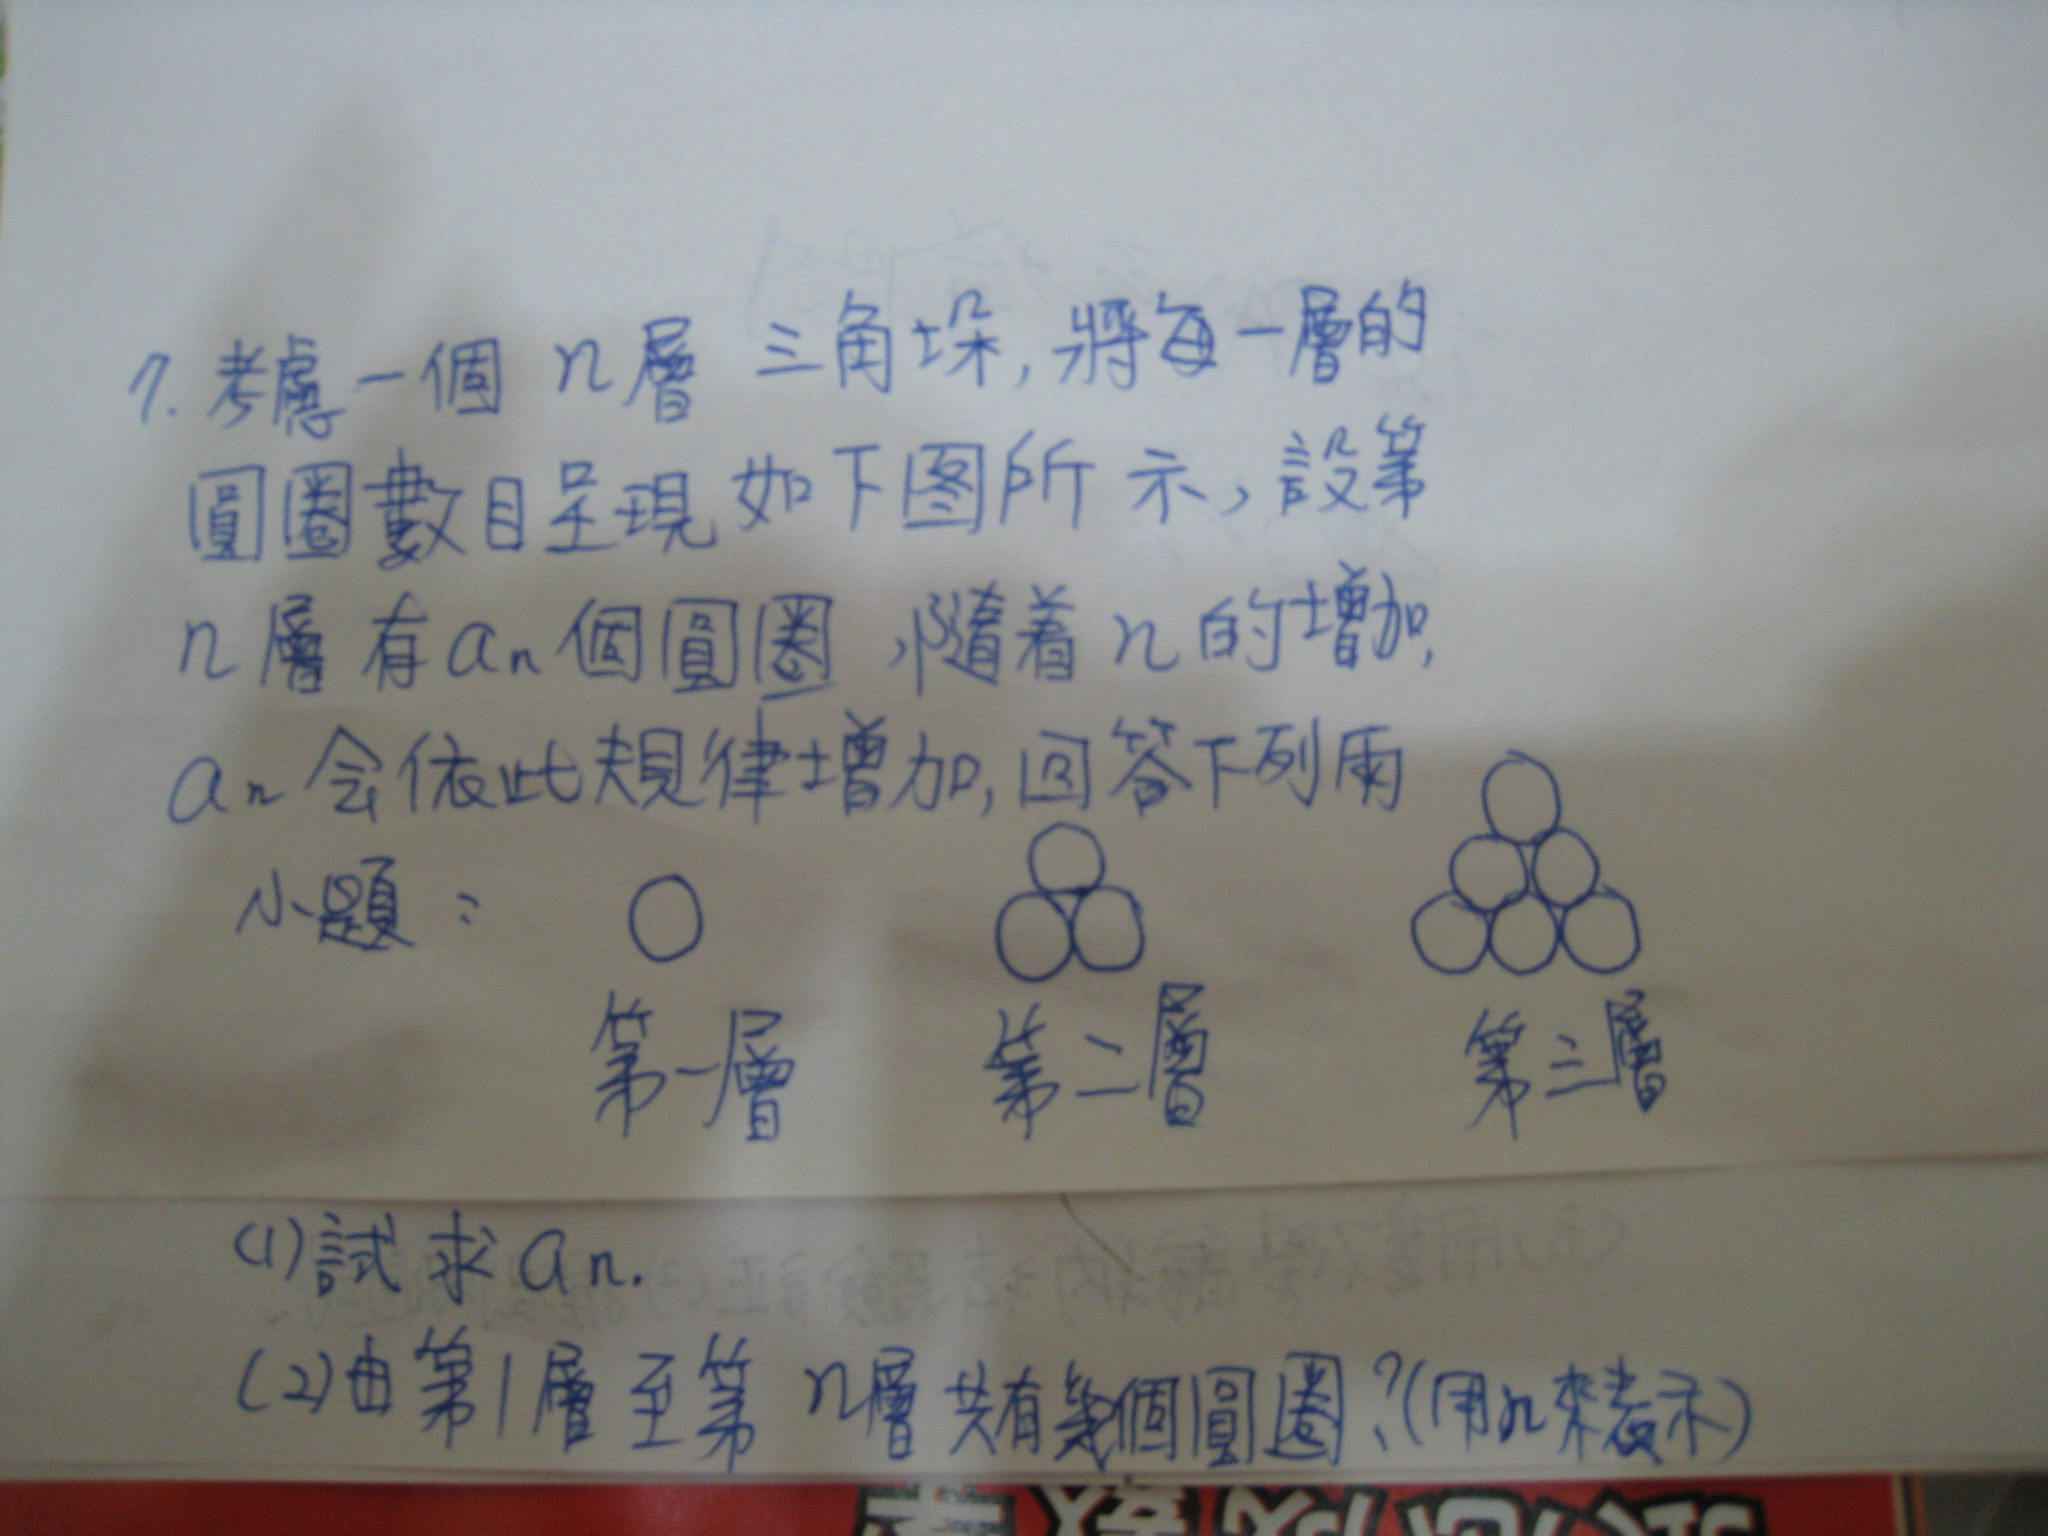 7. 考慮一個 n層 三角垛, 將每一層的
圓圈數目呈現如下图所示, 設第
n層有an個圓圈, 隨着n的增加,
an会依此規律增加, 回答下列兩
小題:
第一層 第二層 第三層
(1)試求an.
(2)由第1層至第n層共有幾個圓圈?(用n來表示)